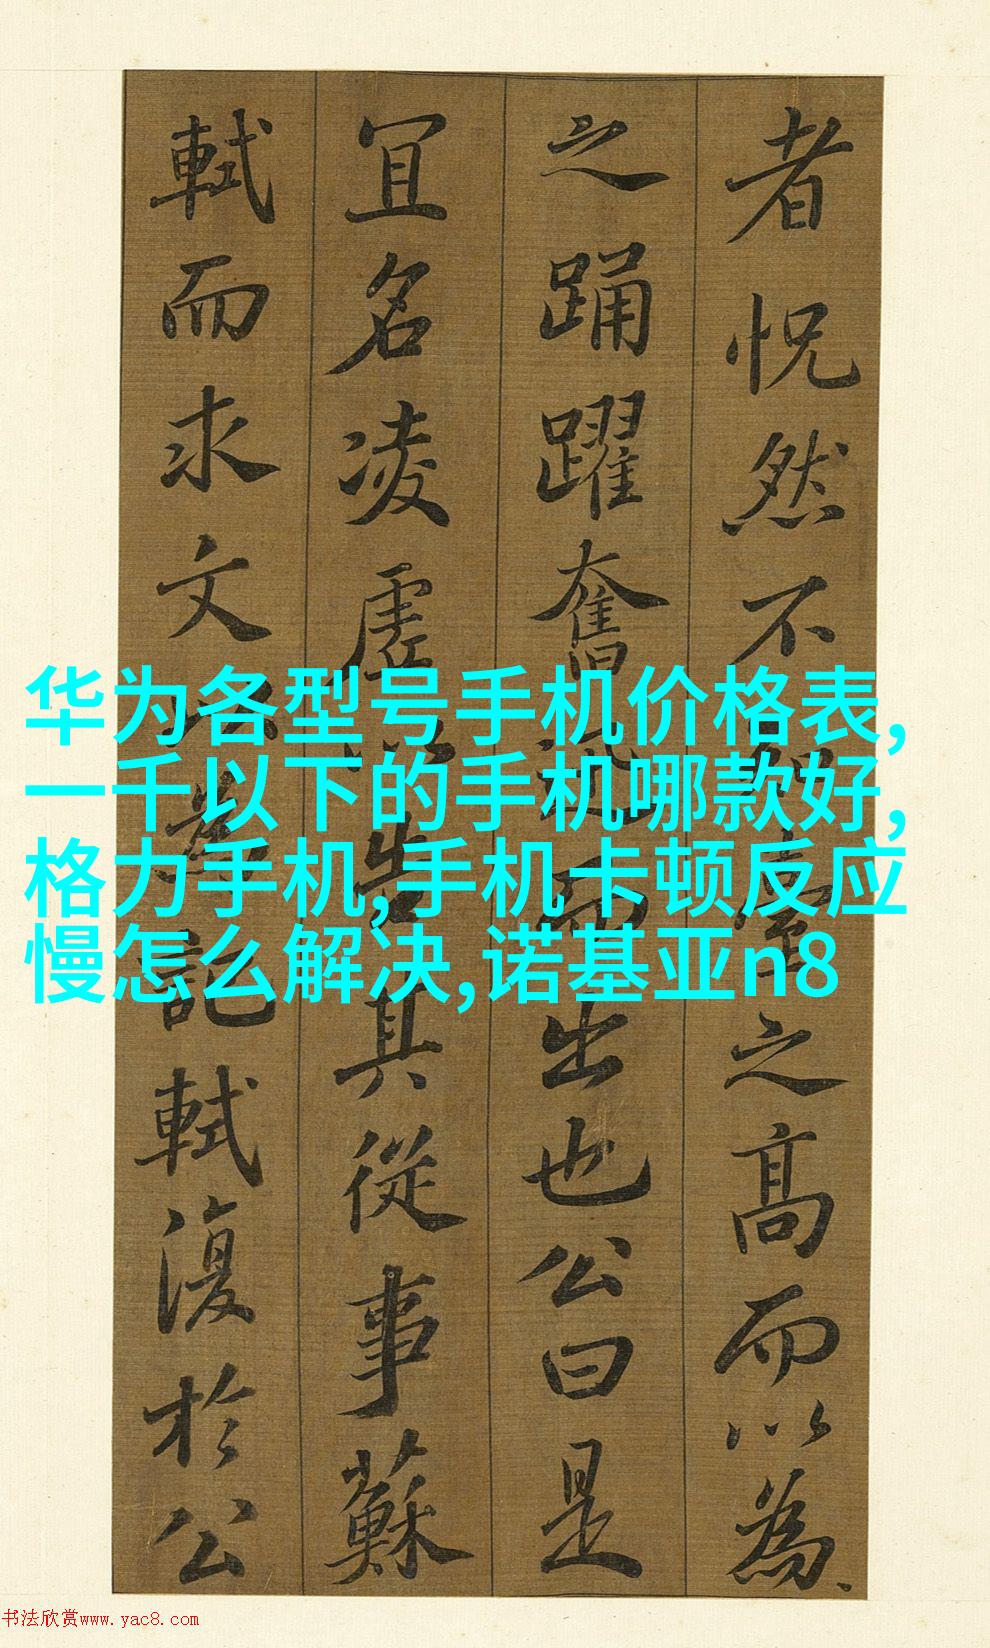 者怳然不知臺之髙而以為
之踊躍奮迅而出也公曰是
冝名凌虗以告其從事蘇
軾而求文以為記軾復於公
华为各型号手机价格表,
一千以下的手机哪款好,
格力手机,手机卡顿反应
慢怎么解决,诺基亚n8
书法欣赏www.yac8.com